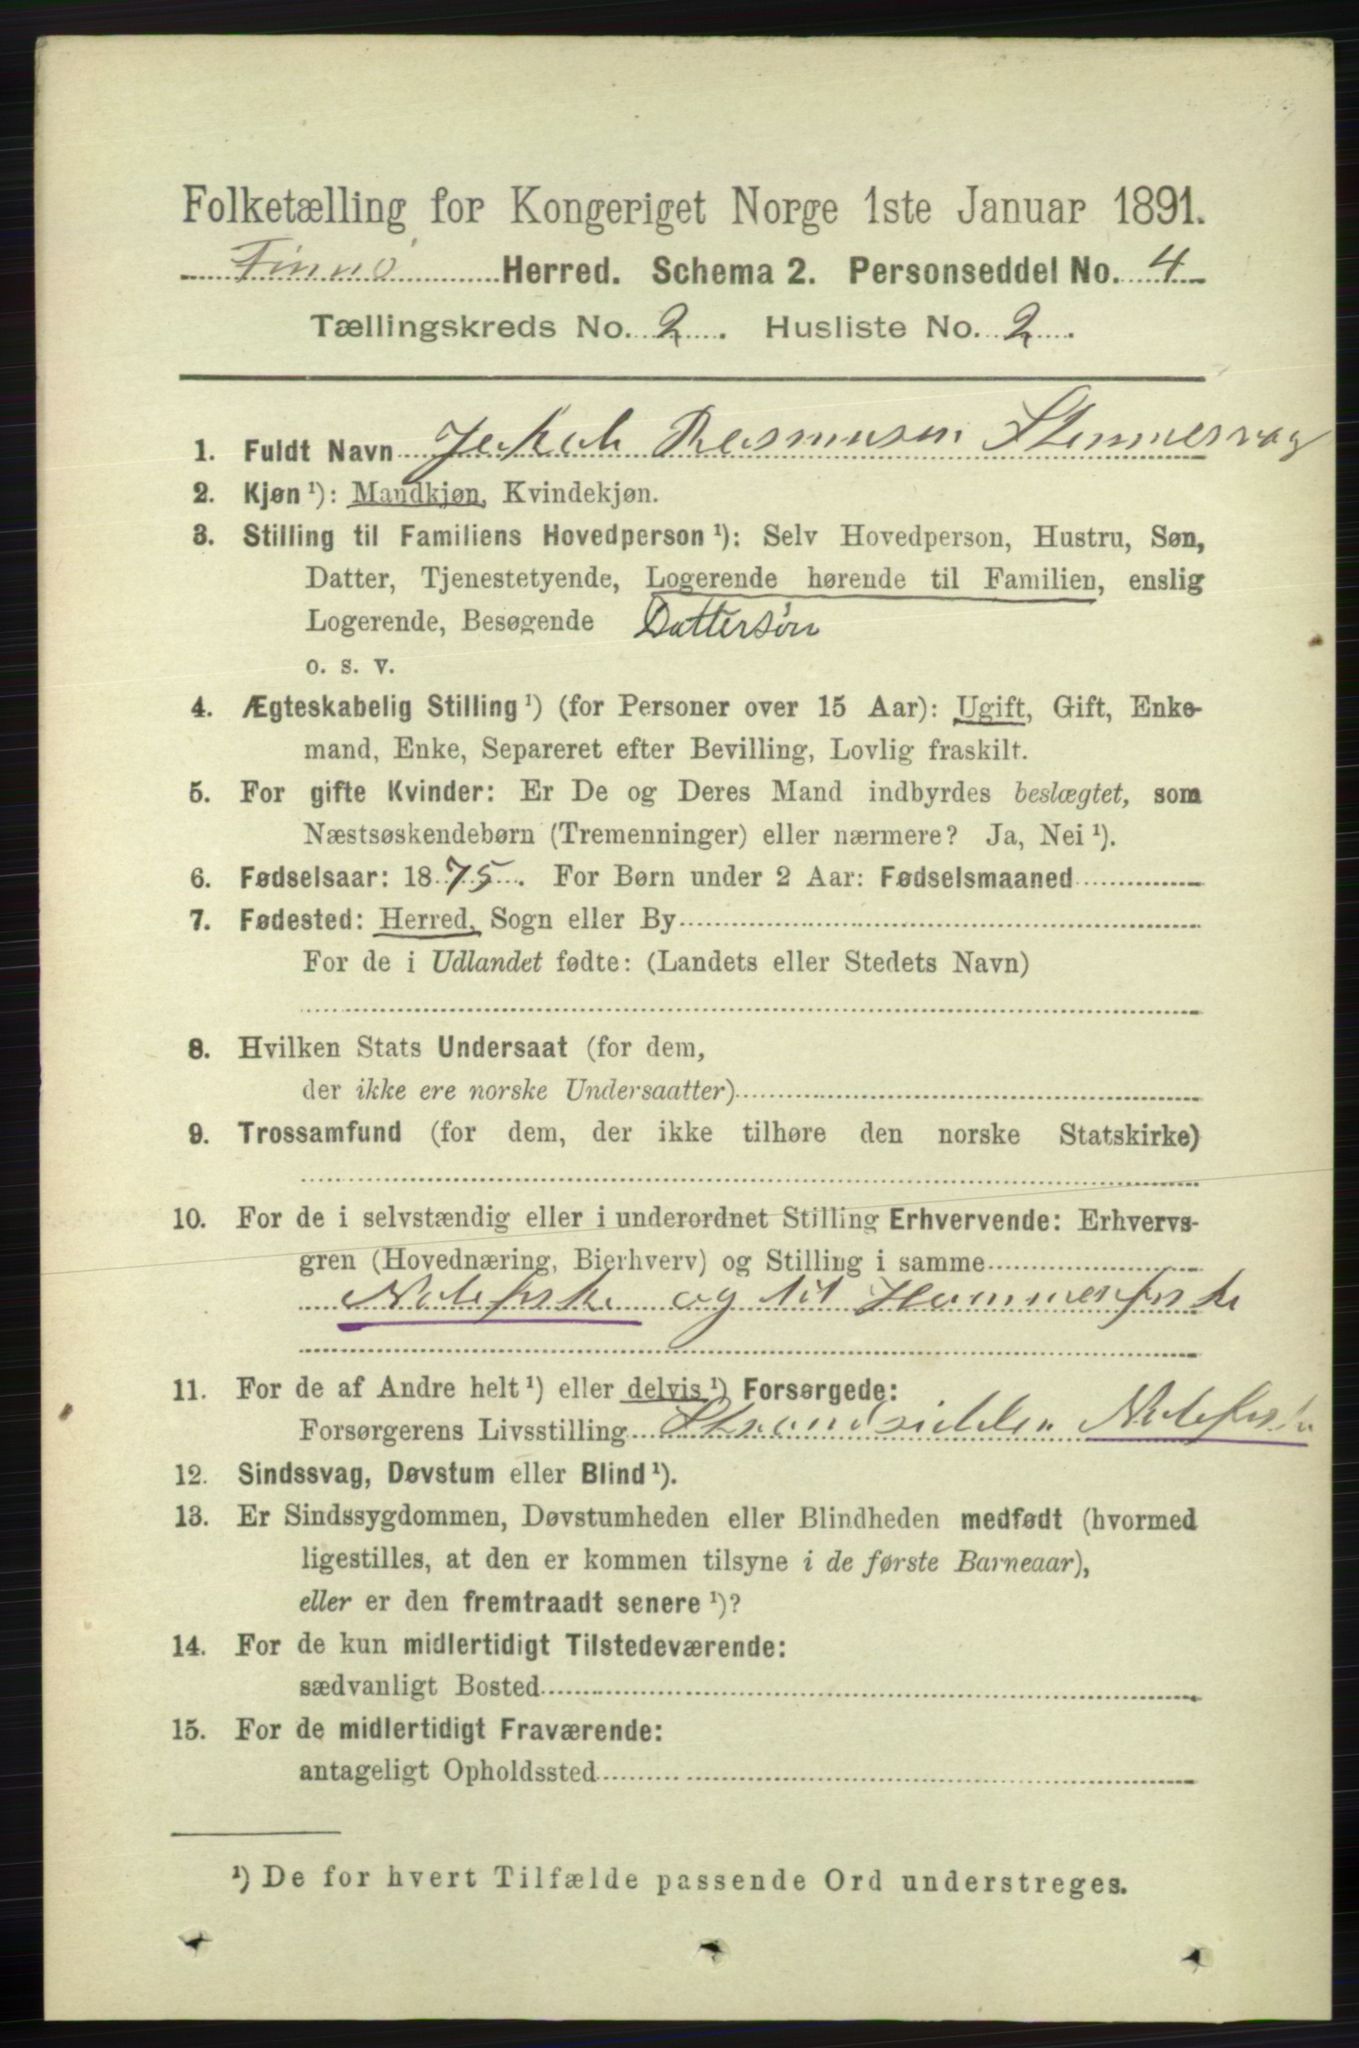 Folketælling for Kongeriget Norge 1ste Januar 1891.
Finnø Herred. Schema 2. Personseddel No. 4
Tællingskreds No. 2. Husliste No. 2.
1. Fuldt Navn Jakob Rasmusen
2. Kjøn ¹): Mandkjøn, Kvindekjøn.
3. Stilling til Familiens Hovedperson ¹): Selv Hovedperson, Hustru, Søn,
Datter, Tjenestetyende, Logerende hørende til Familien, enslig
Logerende, Besøgende Dattersøn
o. s. v.
4. Ægteskabelig Stilling ¹) (for Personer over 15 Aar): Ugift, Gift, Enke-
mand, Enke, Separeret efter Bevilling, Lovlig fraskilt.
5. For gifte Kvinder: Er De og Deres Mand indbyrdes beslægtet, som
Næstsøskendebørn (Tremenninger) eller nærmere? Ja, Nei ¹).
6. Fødselsaar: 1875. For Børn under 2 Aar: Fødselsmaaned
7. Fødested: Herred, Sogn eller By
For de i Udlandet fødte: (Landets eller Stedets Navn)
8. Hvilken Stats Undersaat (for dem,
der ikke ere norske Undersaatter)
9. Trossamfund (for dem, der ikke tilhøre den norske Statskirke)
10. For de i selvstændig eller i underordnet Stilling Erhvervende: Erhvervs-
gren (Hovednæring, Bierhverv) og Stilling i samme
Notefiske og til Hummerfiske
11. For de af Andre helt ¹) eller delvis ¹) Forsørgede:
Forsørgerens Livsstilling Strandsidder Notefiske
12. Sindssvag, Døvstum eller Blind ¹).
13. Er Sindssygdommen, Døvstumheden eller Blindheden medfødt (hvormed
ligestilles, at den er kommen tilsyne i de første Barneaar),
eller er den fremtraadt senere ¹)?
14. For de kun midlertidigt Tilstedeværende:
sædvanligt Bosted
15. For de midlertidigt Fraværende:
antageligt Opholdssted
¹) De for hvert Tilfælde passende Ord understreges.